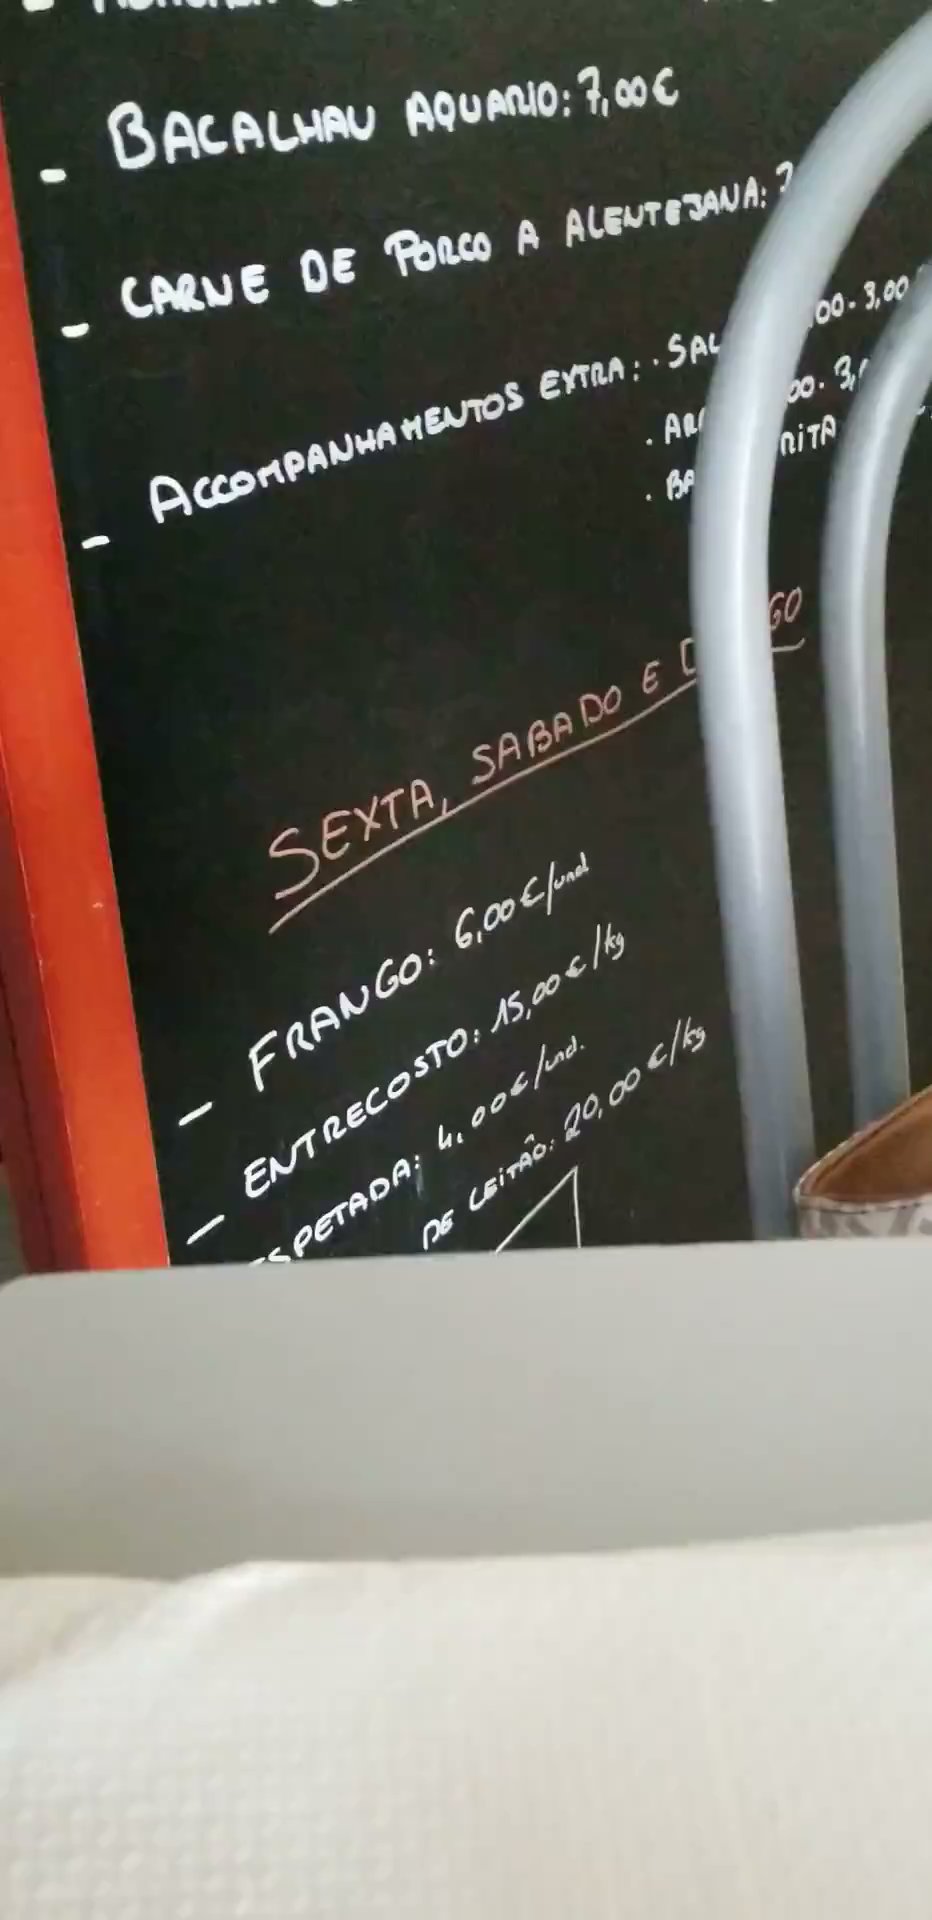 - BACALHAU AQUARIO: 7,00€
- CARNE DE PORCO A ALENTEJANA:
- ACCOMPANHAMENTOS EXTRA: . SAL 00. 3,00
. AR 00. 3,
. BA RITA
SEXTA, SABADO E D GO
- FRANGO: 6,00€/und
- ENTRECOSTO: 15,00€/kg
SPETADA: 4,00€/und.
DE LEITÃO: 20,00€/kg